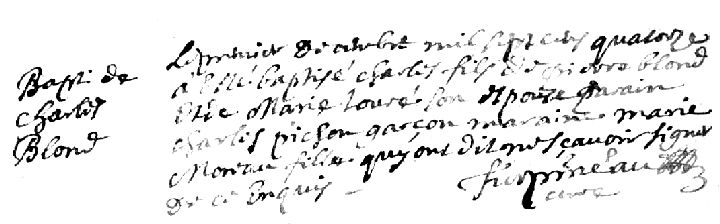 Bapt: de
charles
Blond
Le premier decembre mil sept cens quatorze
a esté baptisé charles fils de pierre blond
Et de Marie louré son Epouze parain
charles pichon garçon maraine marie
Moreau fille quy ont dit ne sçavoir signer
de ce Enquis
curé